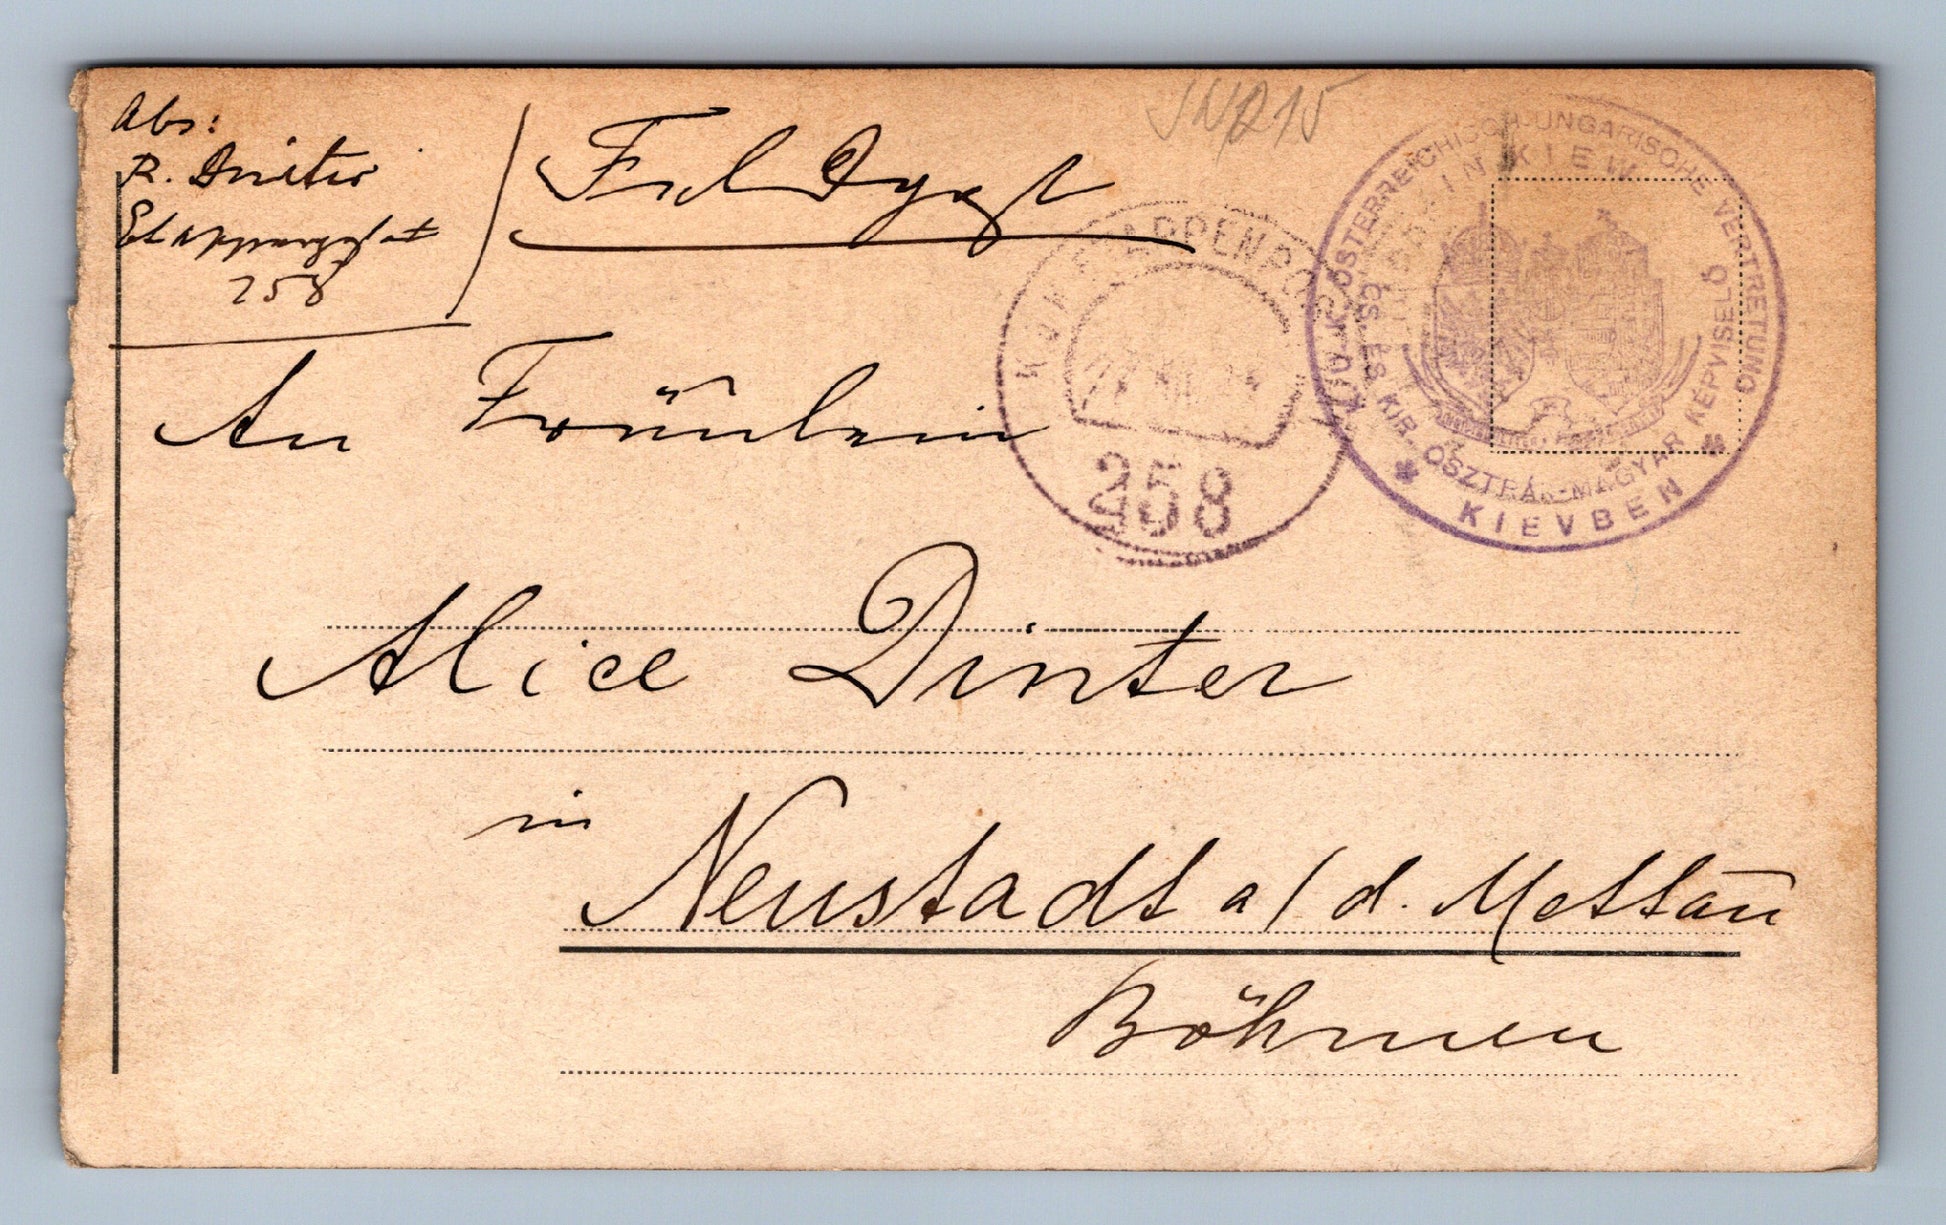 Abs:
R. Dinter
Etappenpostamt
258
Feldpost
JNR15
K.U.K. ETAPPENPOSTAMT
258
K.U.K. ÖSTERREICHISCH-UNGARISCHE VERTRETUNG
IN KIEW
CS. ÉS KIR. OSZTRÁK-MAGYAR KÉPVISELŐ
KIEVBEN
An Fräulein
Alice Dinter
in
Neustadt a/d. Mettau
Böhmen